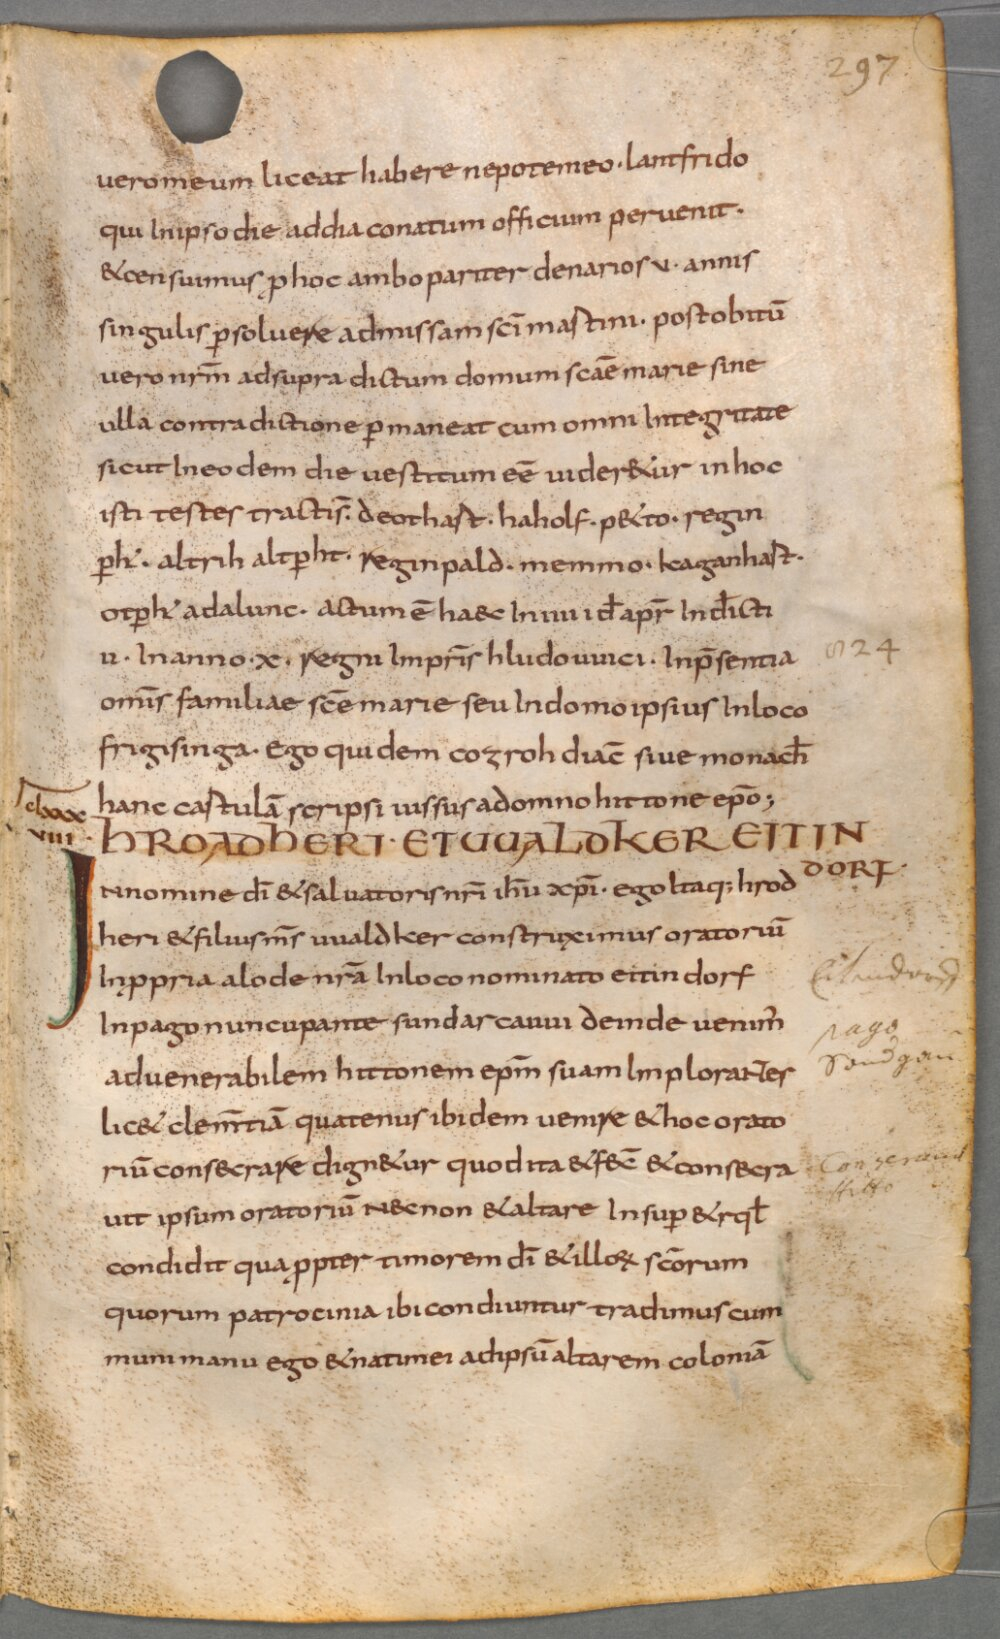 297
uero meum liceat habere nepotemeo · lantfrido
qui In ipso die addiaconatum officium peruenit ·
&censuimus ꝓ hoc ambo pariter denarios v · annis
singulis ꝑsoluere admissam sc̄i mastini · post obitū
uero nr̄m adsupra dictum domum sc̄ae marie sine
ulla contradictione ꝑmaneat cum omni Integritate
sicut Ineodem die uestitum ee̅ uider&ur in hoc
isti testes tractis̄ · deothast · haholf · p&to · regin
ꝑht · altrih altꝑht · reginpald · memmo · kaganhast ·
otꝑht adalunc · actum ē haec In iiii id̄ apr̄ Ind̄icti
ii · In anno · x · regni Impr̄is hludouuici · Inp̄sentia
omīs familiae sc̄e marie seu In domo ipsius Inloco
frigisinga · ego quidem cozroh diac̄ siue monach̄
824
hanc castulā scripsi iussus adomno hittone ep̄o ;
clxxx
viii ·
HROADHERI · ET UUALDKER EITIN
DORF ·
INnomine dī & saluatoris nr̄i ih̄u xp̄i · ego Itaq; hrod
heri & filius ms̄ uualdker construximus oratoriū
Inꝓpria alode nr̄a Inloco nominato eitindorf
Inpago nuncupante sundarcauui deinde uenim̄
aduenerabilem hittonem ep̄m suam Implorantes
pago
Sondgau
lic& clem̄tiā quatenus ibidem uenire & hoc orato
riū consecrare dign&ur quod ita & fec̄ & consecra
uit ipsum oratoriū necnon & altare Insuꝑ & rql̄
condidit quaꝓpter timorem dī & illoꝝ sc̄orum
quorum patrocinia ibi condiuntur tradimus cum
muni manu ego & natimei adipsū altarem coloniā